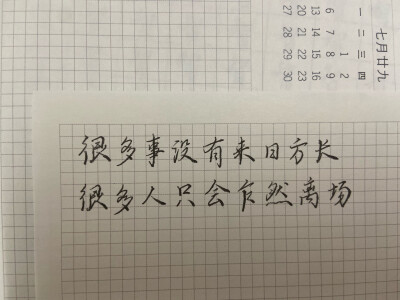 七月廿九
一 二 三 四
1 2
6 7 8 9
13 14 15 16
20 21 22 23
27 28 29 30
很多事没有来日方长
很多人只会乍然离场